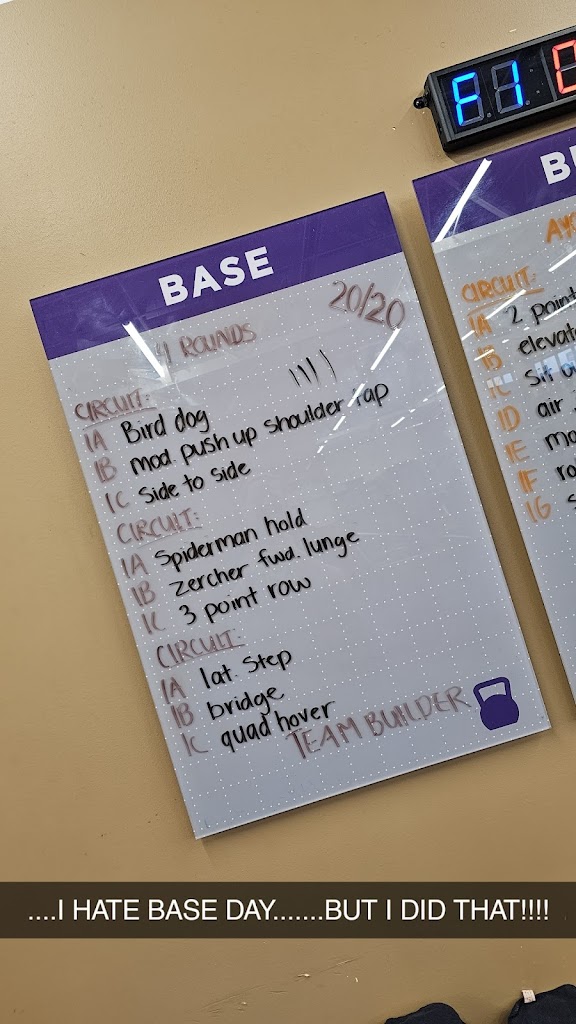 F1
BASE
20/20
4 ROUNDS
CIRCUIT:
1A Bird dog
1B mod. push up shoulder tap
1C Side to side
CIRCUIT:
1A Spiderman hold
1B Zercher fwd. lunge
1C 3 point row
CIRCUIT:
1A lat. Step
1B bridge
1C quad hover
TEAM BUILDER
CIRCUIT:
1A 2 point
1B
1C
1D air
1E
1F
1G
....I HATE BASE DAY.......BUT I DID THAT!!!!